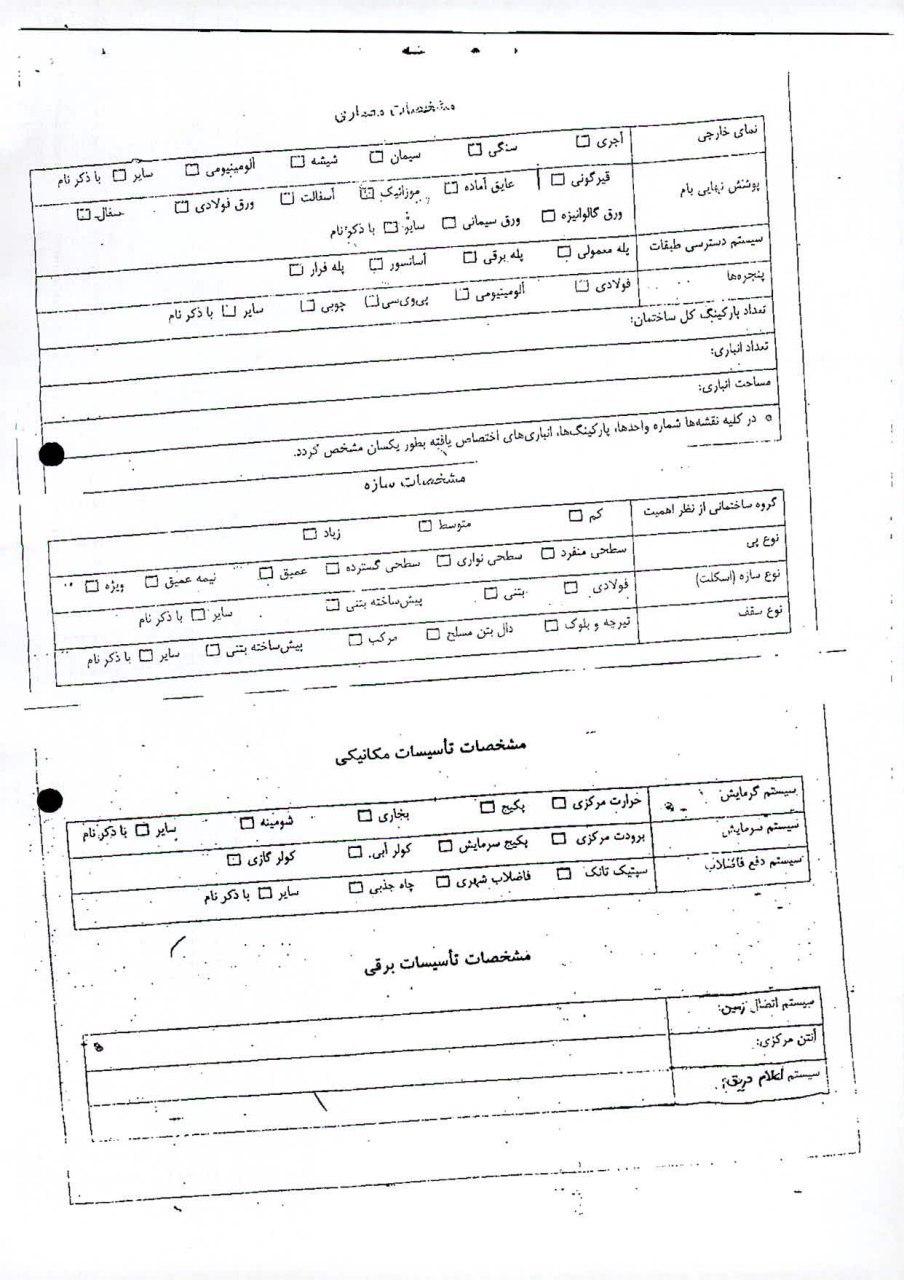 مشخصات معماری
نمای خارجی آجری □ سنگی □ سیمان □ شیشه □ آلومینیومی □ سایر □ با ذکر نام
پوشش نهایی بام قیرگونی □ عایق آماده □ موزائیک □ آسفالت □ ورق فولادی □ سفال □
ورق گالوانیزه □ ورق سیمانی □ سایر □ با ذکر نام
سیستم دسترسی طبقات پله معمولی □ پله برقی □ آسانسور □ پله فرار □
پنجره‌ها فولادی □ آلومینیومی □ پی‌وی‌سی □ چوبی □ سایر □ با ذکر نام
تعداد پارکینگ کل ساختمان:
تعداد انباری:
مساحت انباری:
° در کلیه نقشه‌ها شماره واحدها، پارکینگ‌ها، انباری‌های اختصاص یافته بطور یکسان مشخص گردد.
مشخصات سازه
گروه ساختمانی از نظر اهمیت کم □ متوسط □ زیاد □
نوع پی سطحی منفرد □ سطحی نواری □ سطحی گسترده □ عمیق □ نیمه عمیق □ ویژه □
نوع سازه (اسکلت) فولادی □ بتنی □ پیش‌ساخته بتنی □ سایر □ با ذکر نام
نوع سقف تیرچه و بلوک □ دال بتن مسلح □ مرکب □ پیش‌ساخته بتنی □ سایر □ با ذکر نام
مشخصات تأسیسات مکانیکی
سیستم گرمایش حرارت مرکزی □ پکیج □ بخاری □ شومینه □ سایر □ با ذکر نام
سیستم سرمایش برودت مرکزی □ پکیج سرمایش □ کولر آبی □ کولر گازی □
سیستم دفع فاضلاب سپتیک تانک □ فاضلاب شهری □ چاه جذبی □ سایر □ با ذکر نام
مشخصات تأسیسات برقی
سیستم اتصال زمین:
آنتن مرکزی:
سیستم اعلام حریق: